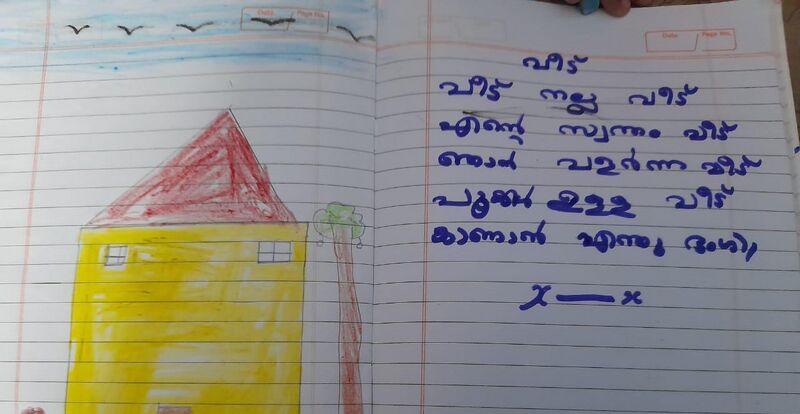 Date Page No.
Date Page No.
വീട്
വീട് നല്ല വീട്
എന്റെ സ്വന്തം വീട്
ഞാൻ വളർന്ന വീട്
പൂക്കൾ ഉള്ള വീട്
കാണാൻ എന്തു ഭംഗി
x — x